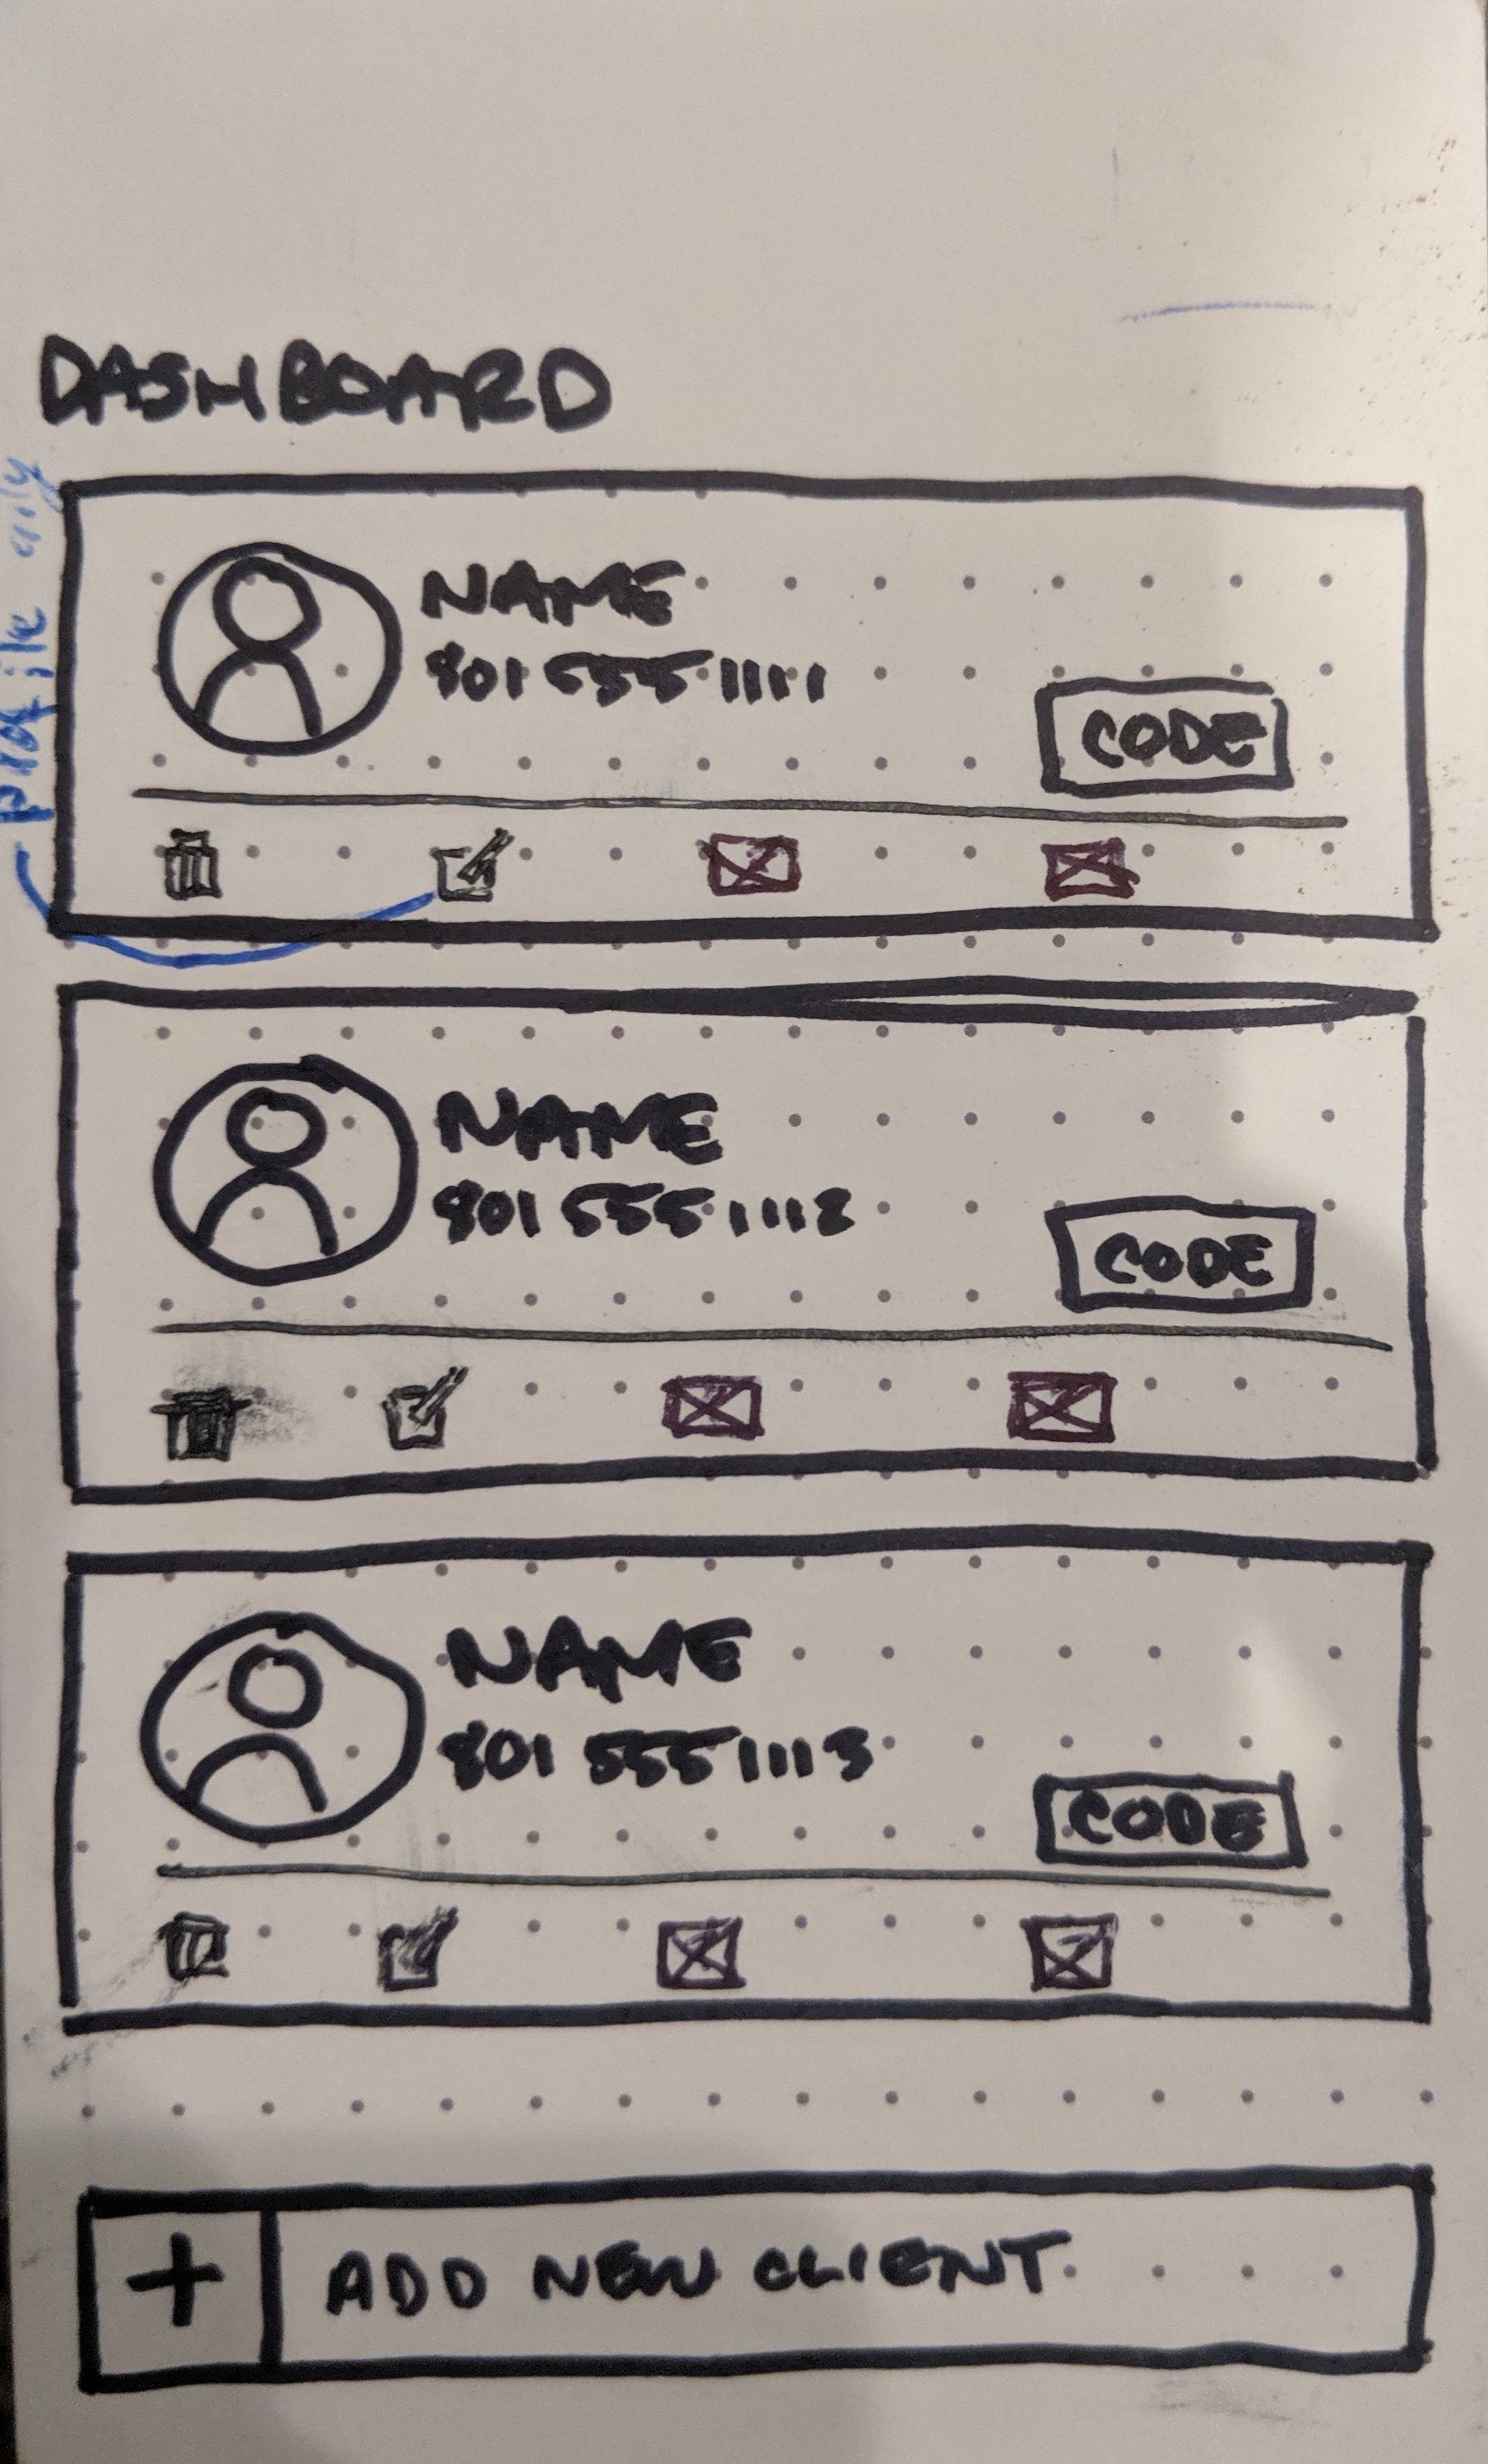 DASHBOARD
profile only
NAME
801 555 1111
CODE
NAME
801 555 1112
CODE
NAME
801 555 1113
CODE
+ ADD NEW CLIENT